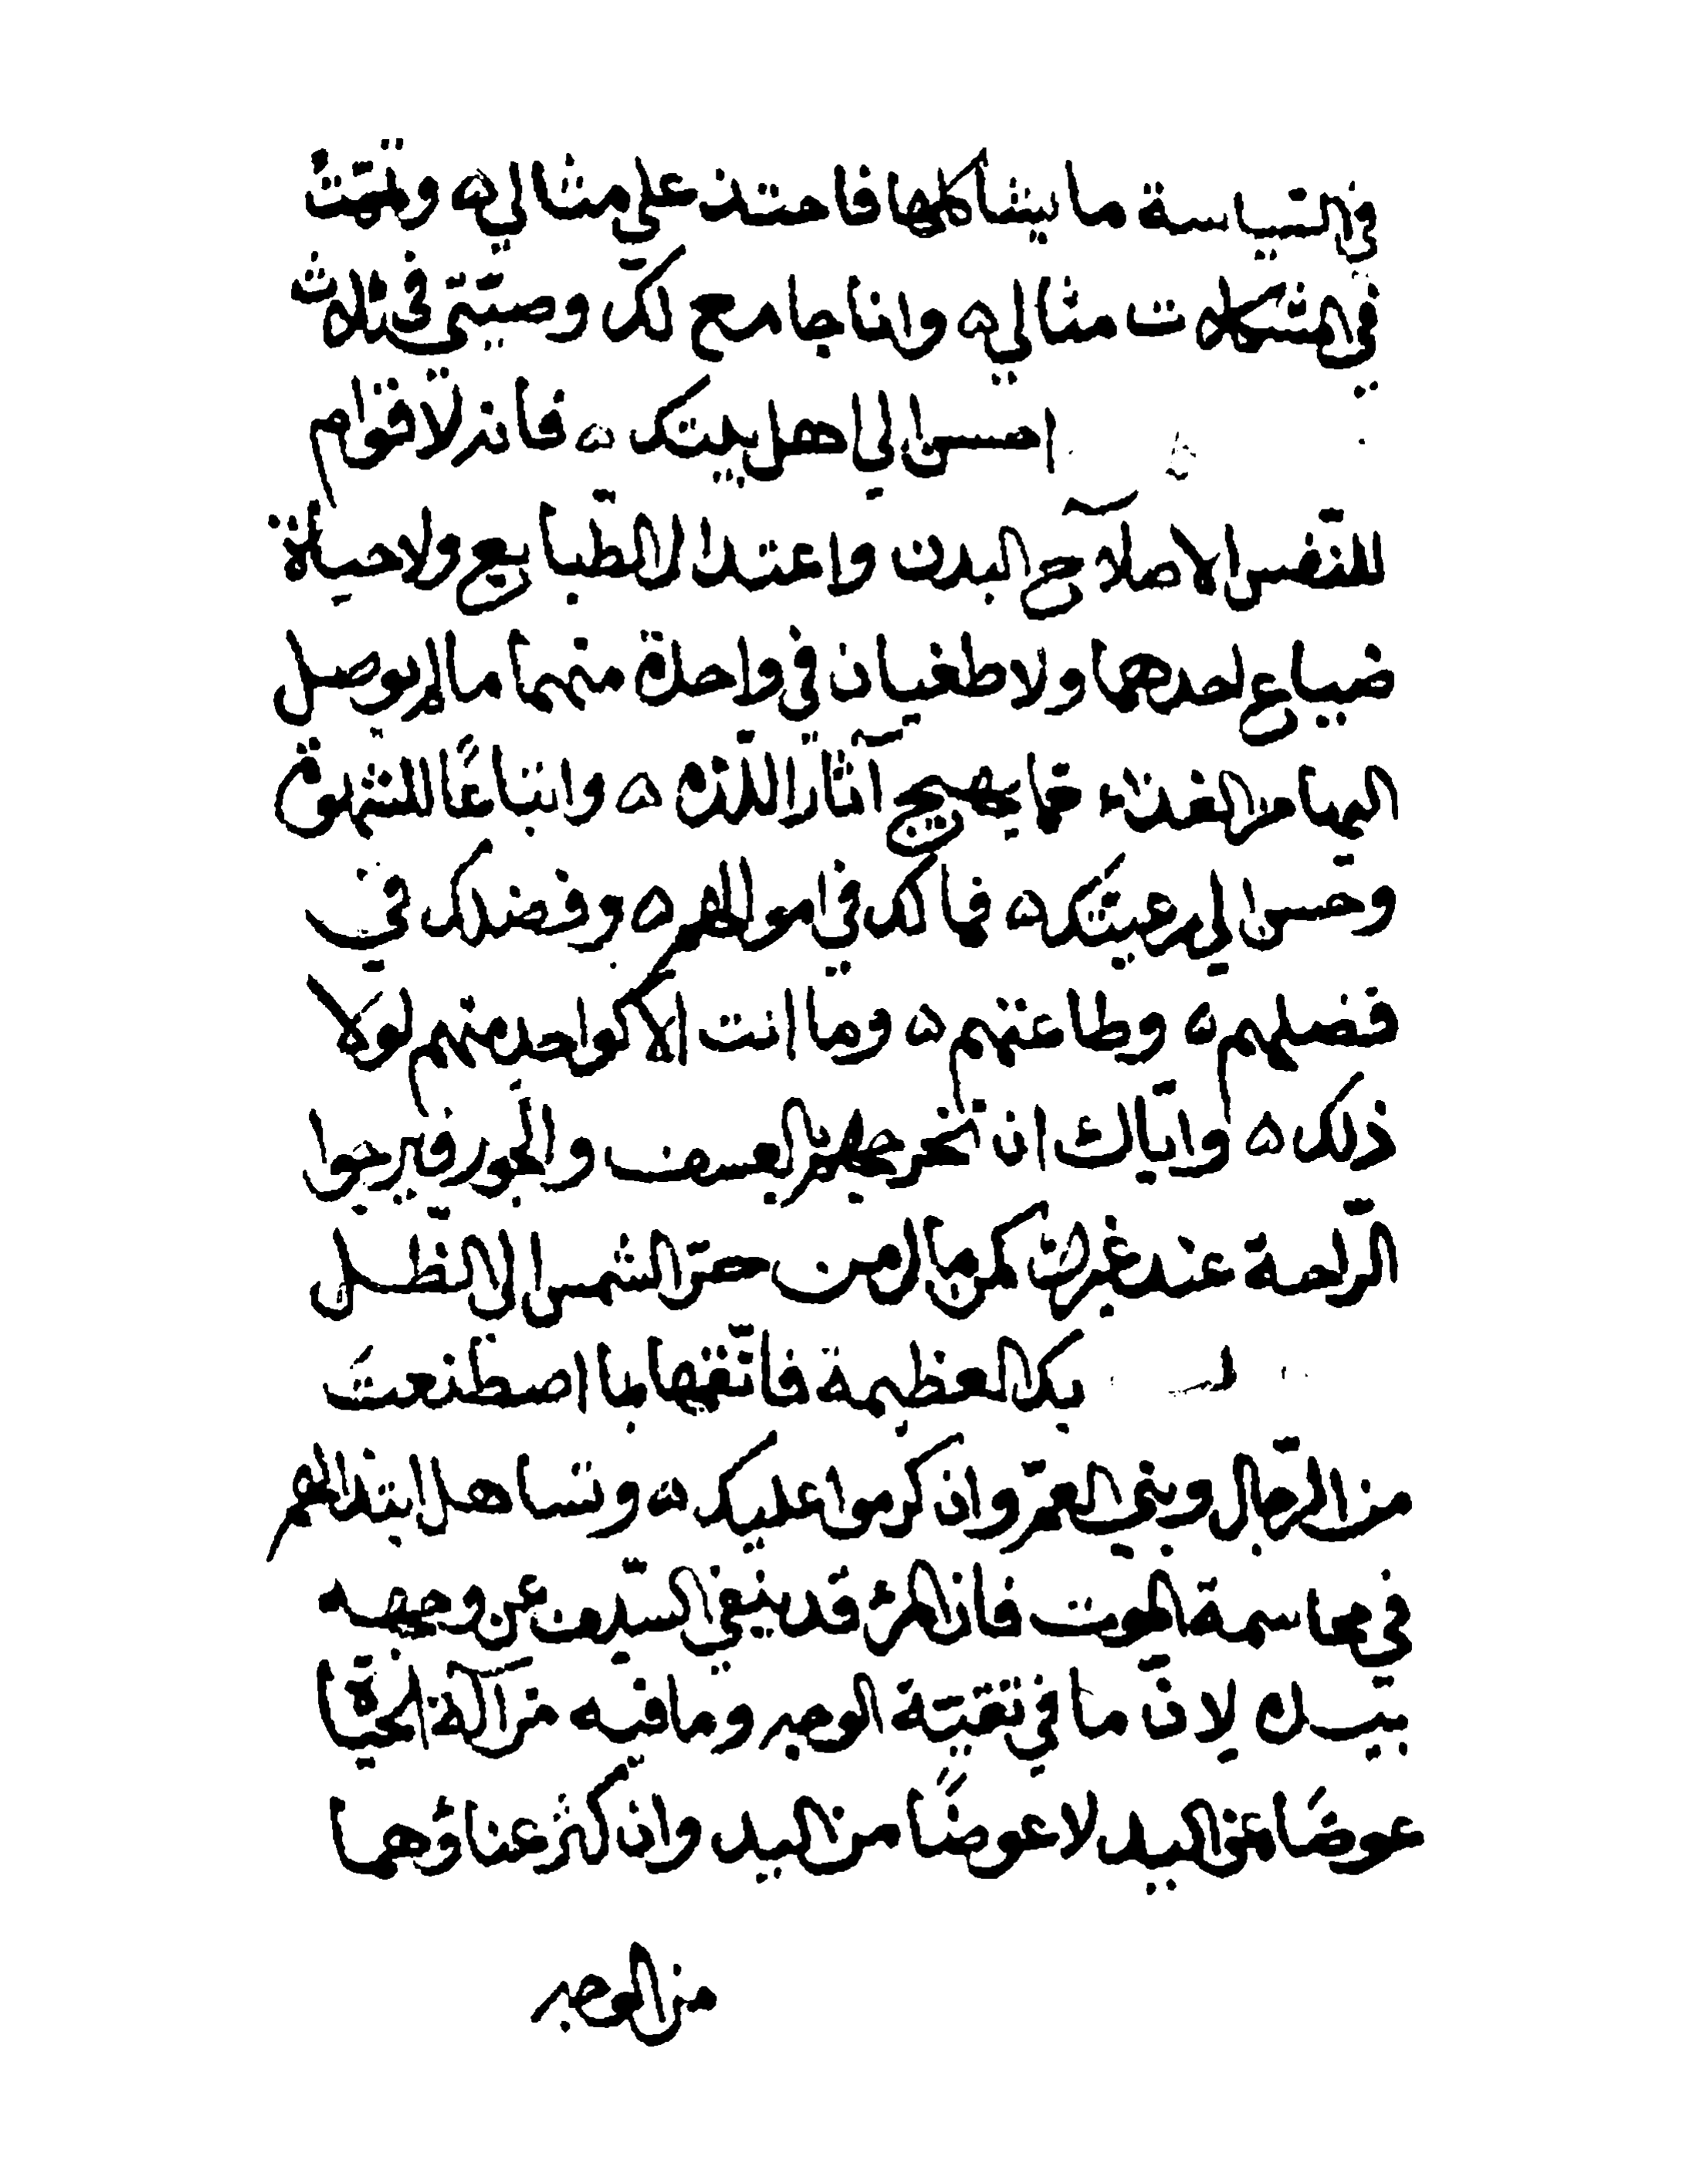 في السّياسة ما يشاكلها فاحتذ على مثالي ه وتمّت
في المشكلات مثالي ه وانا جامع لك وصيّتي في ثلاث
احسن الي اهل بيتك ه فانه لا قوام
للنّفس الا صلآح البدن واعتدال الطّبايع ولا حياة
ضياع احدهما ولا طغيان في واحدة منهما ما لم يوصل
اليهما من الغذاء مما يهيج آثار اللّذه ه واتباعًا للشهوة
وتحسن الي رعيتك ه فمالك في اموالهم ه وفضلك في
فضلهم ه وطاعتهم ه وما انت الا كواحد منهم لولا
ذلك ه وايّاك ان تخرجهم العسف والجور فيرجوا
الرّاحة عند غيرك كمن مال من حرّ الشمس الى الظّل
بك العظيمة فاتّقها بما اصطنعت
من الرّجال وبني العمّ وان كرموا عليك ه وتساهل ابتذالهم
في مقاسمة الموت فان المرء قد ينفي السيف عن وجهه
بيده لانّ ما في بقيّة الوجه وما فيه من آلة الحياة
عوضًا عن اليد لا عوضًا من اليد وان كثر عناؤهما
من الوجه